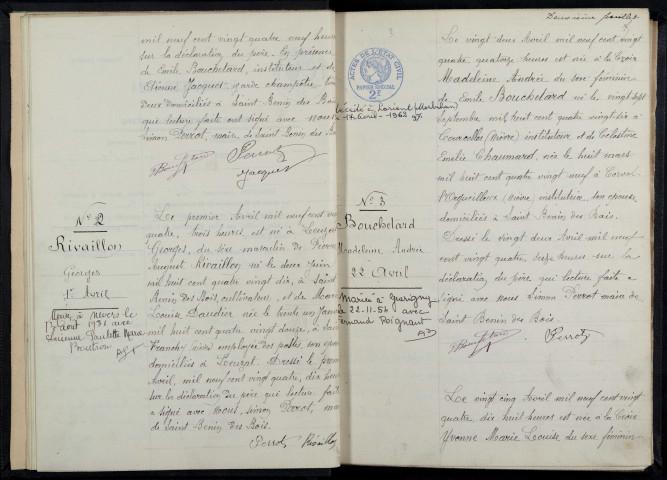 mil neuf cent vingt quatre neuf heures
sur la déclaration du père. En présence
de Emile Bouchelard, instituteur et de
Etienne Jacquet, garde champêtre, tous
deux domiciliés à Saint Benin des Bois
que lecture faite ont signé avec nous
Simon Perrot, maire de Saint Benin des Bois
Perrot
Jacquet
N° 2
Rivaillon
Georges
1er Avril
Marié à Nevers le
17 août 1931 avec
Lucienne Paulette
Le premier Avril mil neuf cent vingt
quatre, trois heures est né à Leuzat
Georges, du sexe masculin de Pierre
August Rivaillon né le deux Juin
mil huit cent quatre vingt dix, à Saint
Benin des Bois, cultivateur, et de Marie
Louise Daudier née le trente un Janvier
mil huit cent quatre vingt douze, à
Franchy employée des postes, son épouse
domiciliés à Leuzat. Dressé le premier
Avril, mil neuf cent vingt quatre, dix heures
sur la déclaration du père qui lecture faite
a signé avec nous, Simon Perrot, maire
de Saint Benin des Bois.
Perrot Rivaillon
Deuxième feuillet
ACTES DE L'ÉTAT CIVIL
PAPIER SPÉCIAL
2F
Décédée à Lorient (Morbihan)
le 17 Avril 1963
N° 3
Bouchelard
Madeleine Andrée
22 Avril
Mariée à Guérigny
le 22-11-54 avec
Fernand Poignant
Le vingt deux Avril mil neuf cent vingt
quatre quatorze heures est née à la Croix
Madeleine Andrée du sexe féminin
de Emile Bouchelard né le vingt sept
Septembre mil huit cent quatre vingt six à
Courcelles (Nièvre) instituteur et de Célestine
Emélie Chaumard, née le huit mars
mil huit cent quatre vingt neuf à Corvol
l'Orgueilleux (Nièvre) institutrice, son épouse
domiciliés à Saint Benin des Bois.
Dressé le vingt deux Avril mil neuf
cent vingt quatre, seize heures sur la
déclaration du père qui lecture faite a
signé avec nous Simon Perrot maire de
Saint Benin des Bois.
Perrot
Le vingt cinq Avril mil neuf cent vingt
quatre, dix huit heures est née à la Croix
Yvonne Marie Louise du sexe féminin